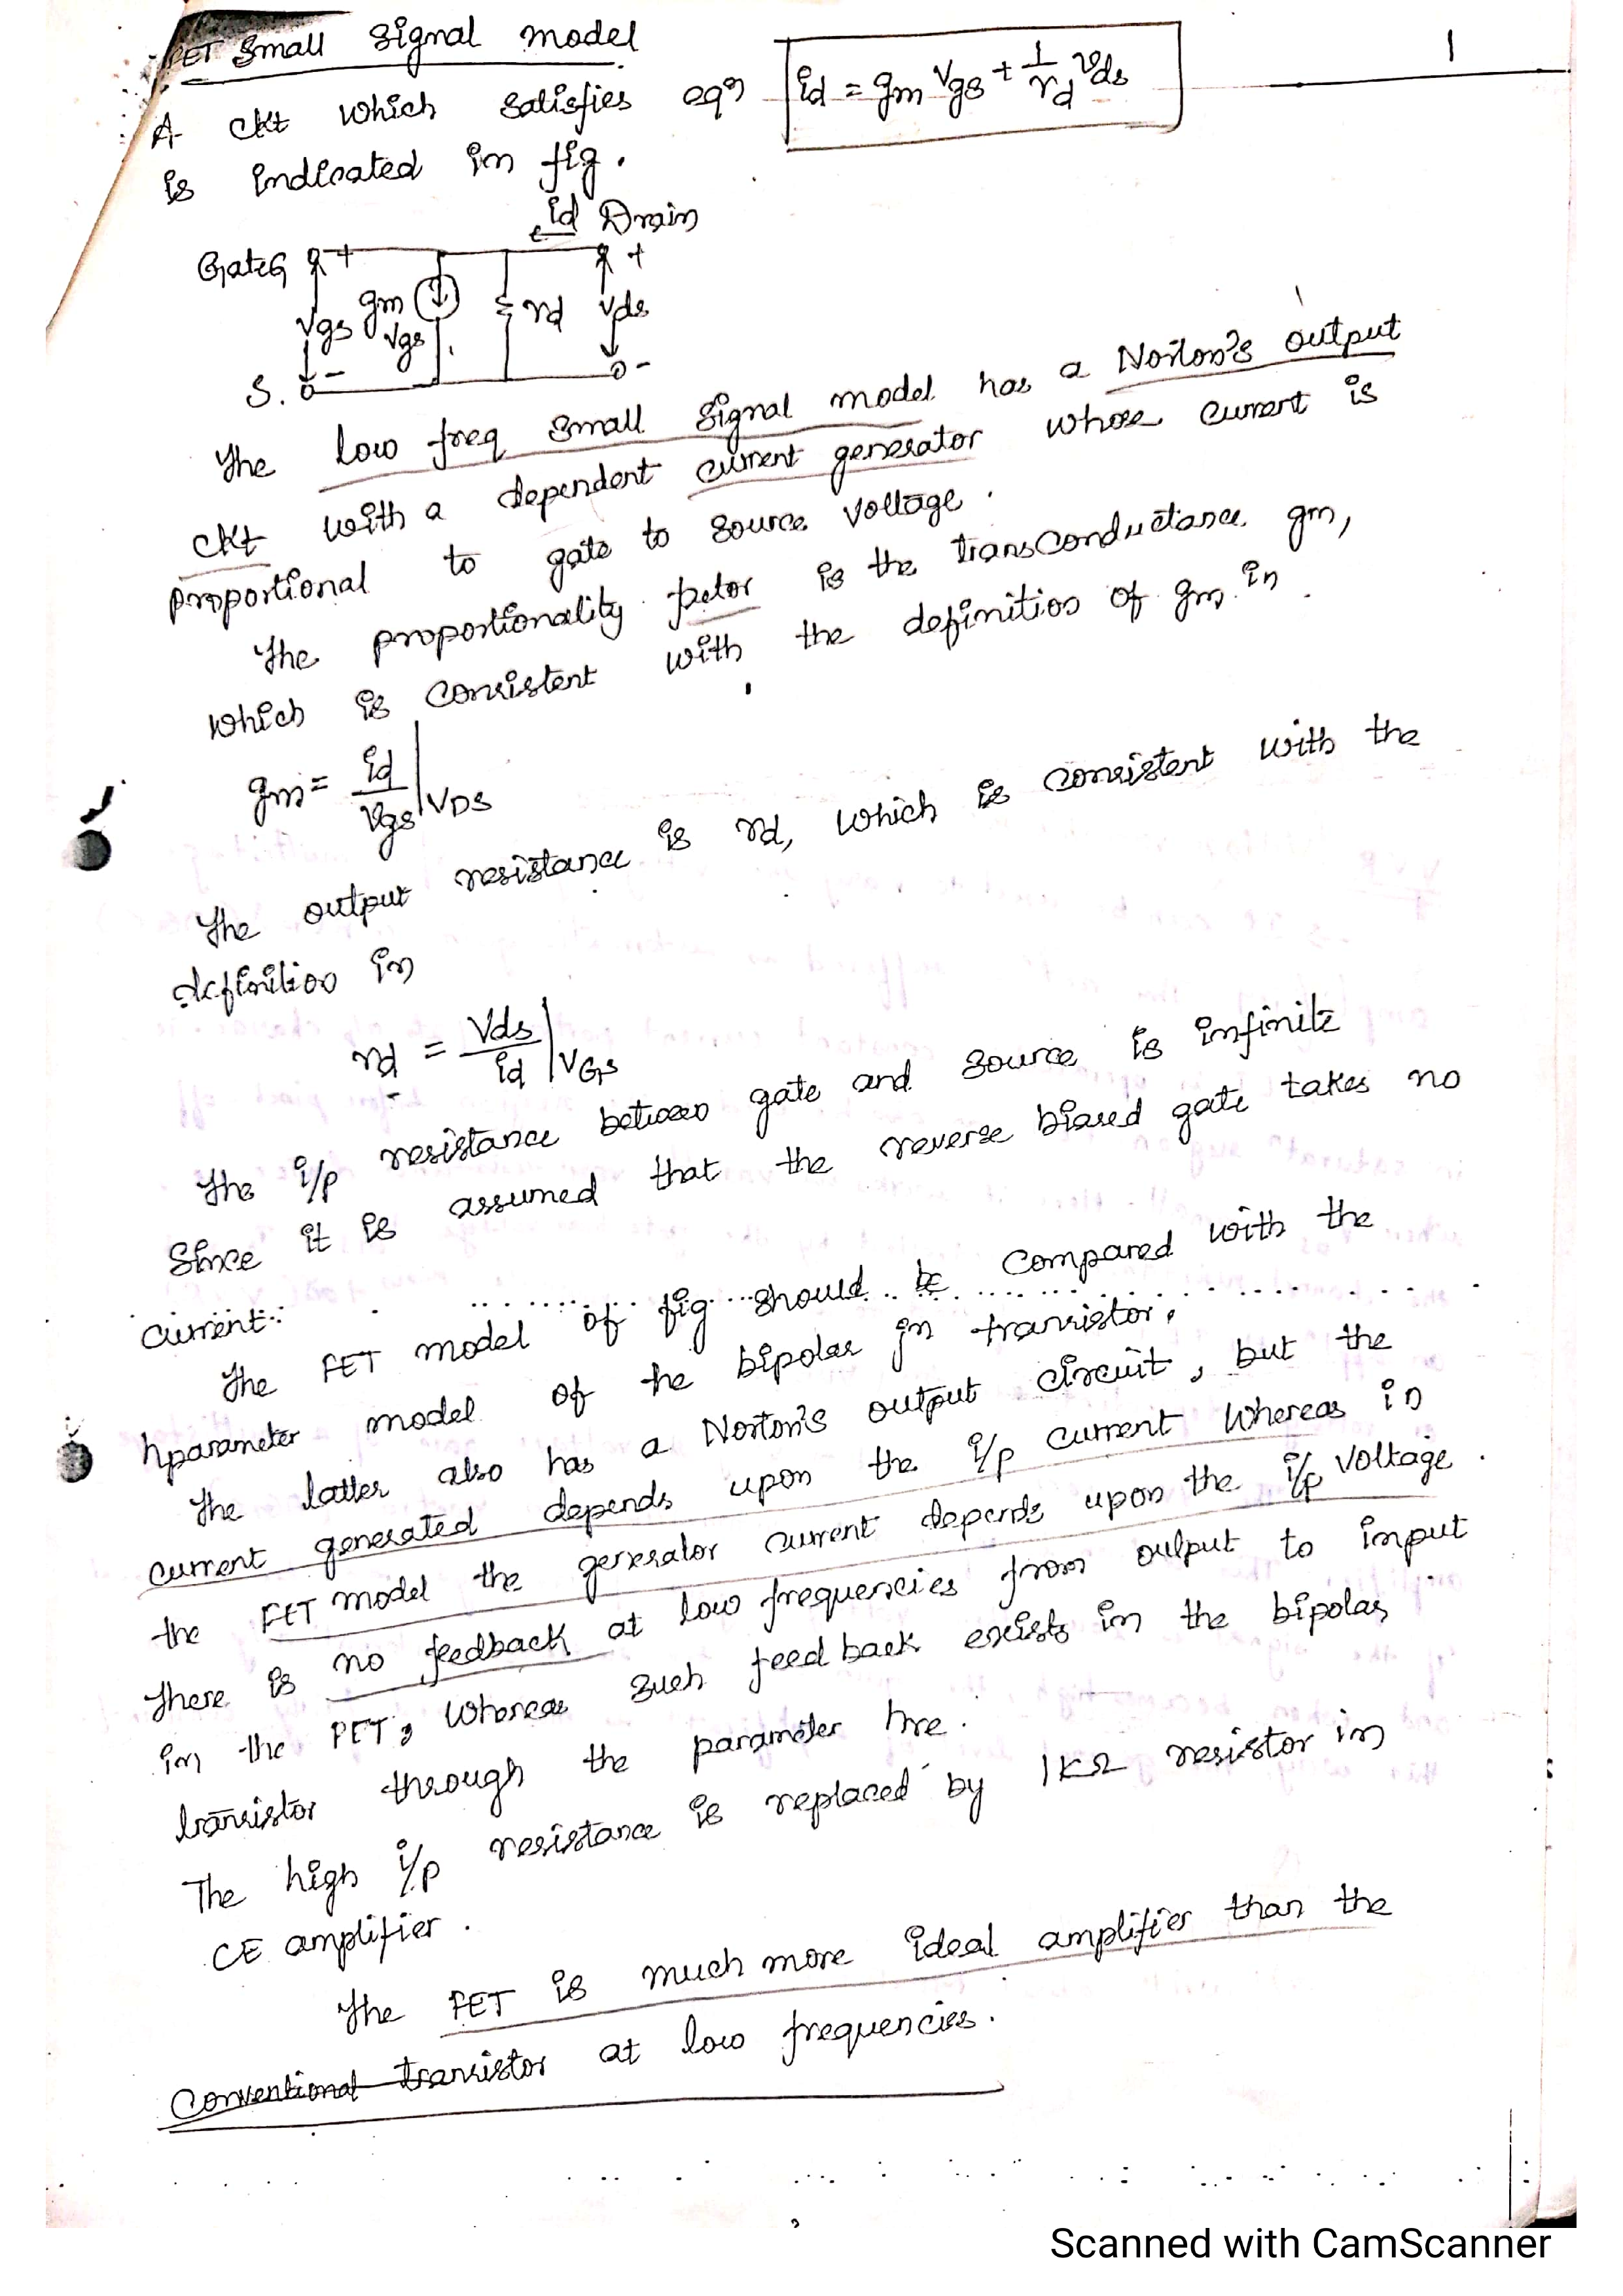 FET Small Signal model
1
A ckt which satisfies eqn id = gm Vgs + 1/rd Vds
is indicated in fig.
id Drain
Gate G + +
gm Vgs rd Vds
Vgs
S. - -
The low freq small signal model has a Norton's output
ckt with a dependent current generator whose current is
proportional to gate to source voltage.
The proportionality fctor is the transconductance gm,
which is consistent with the definition of gm in
gm = id/Vgs | VDS
The output resistance is rd, which is consistent with the
definition in
rd = Vds/id | VGS
The i/p resistance between gate and source is infinite
Since it is assumed that the reverse biased gate takes no
current.
The FET model of fig should be compared with the
hparameter model of the bipolar jn transistor.
The latter also has a Norton's output circuit, but the
current generated depends upon the i/p current whereas in
the FET model the generator current depends upon the i/p voltage.
There is no feedback at low frequencies from output to input
in the FET, whereas such feedback exists in the bipolar
transistor through the parameter hre.
The high i/p resistance is replaced by 1KΩ resistor in
CE amplifier.
The FET is much more ideal amplifier than the
conventional transistor at low frequencies.
Scanned with CamScanner